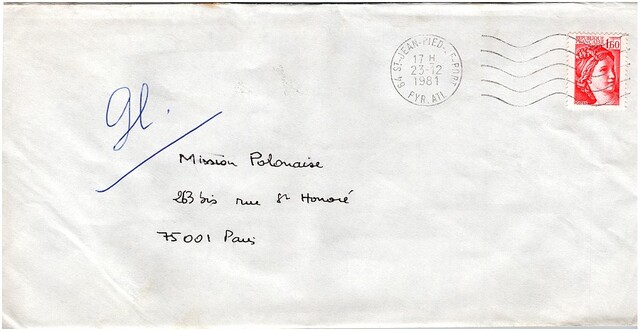 64 ST-JEAN-PIED-DE-PORT
17 H
23-12
1981
PYR. ATL.
REPUBLIQUE
FRANÇAISE
1,60
Gl.
Mission Polonaise
263 bis rue St Honoré
75001 Paris